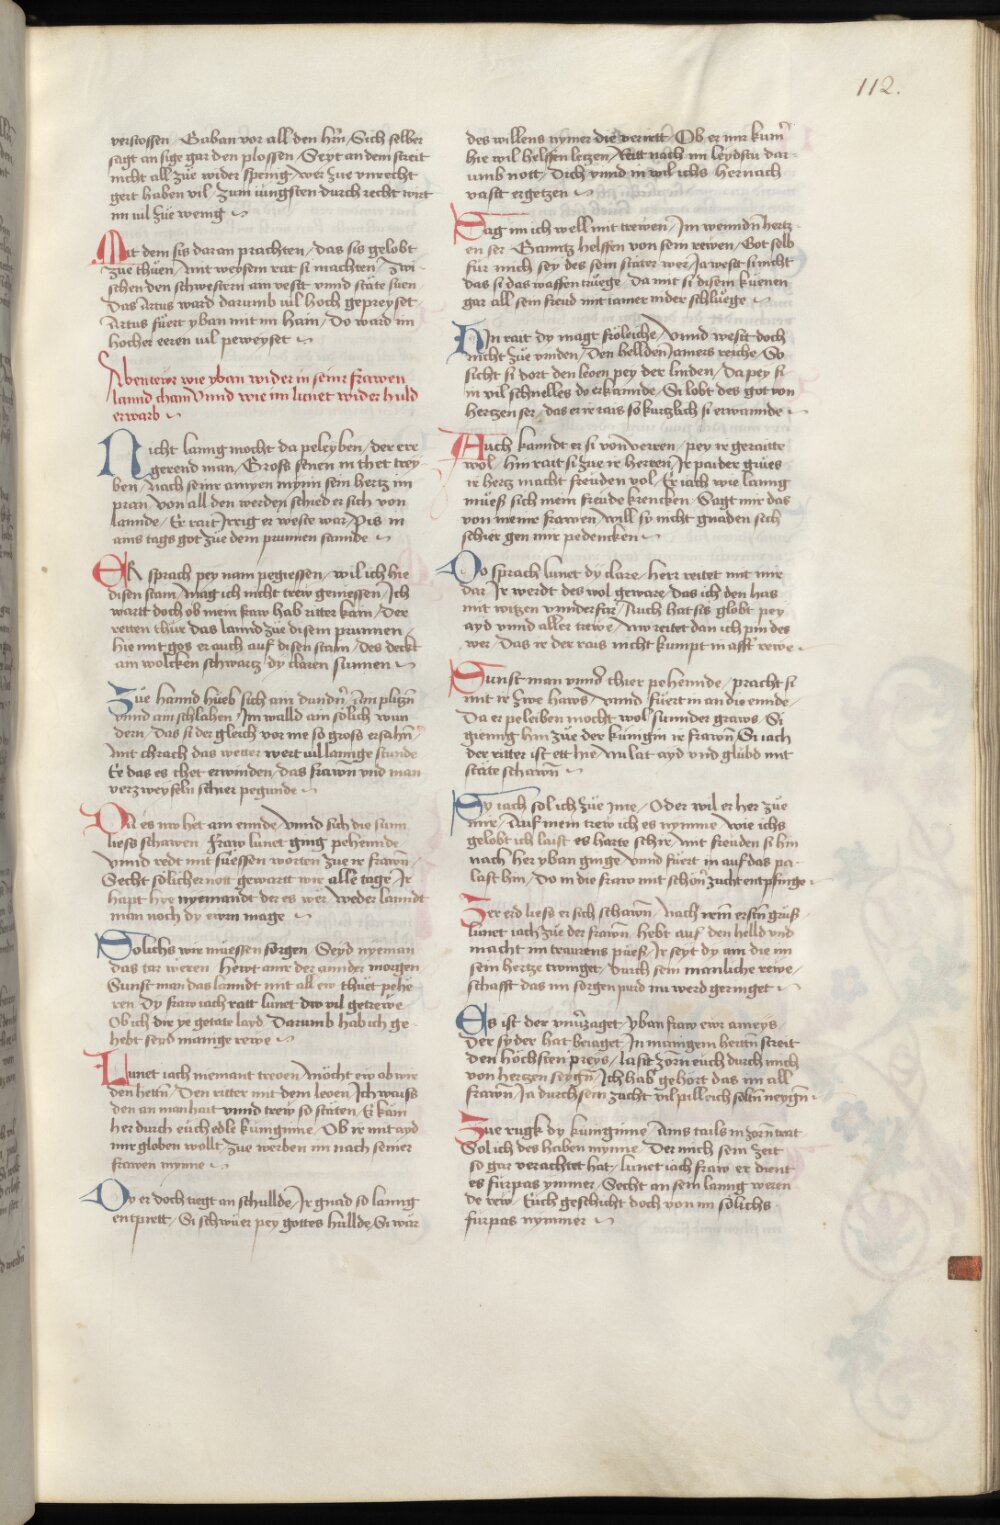 112.
verstossen / Gaban vor all den hrn̄ / Sich selber
sagt an sige gar den plossen / Seyt an dem streit
nicht all zue wider spring / wer zue vnrecht
gert haben vil / zum iungsten durch recht wirt
im vil zue wenig
Mit dem sis daran prachten / das sis gelobt
zue thuen / mit weysem rat si machten / zwi-
schen den schwestern am vestt vnnd stäte suen
Das Artus ward darumb vil hoch gepreyset
Artus fuert yban mit im hain / Do ward im
hocher eeren vil peweyset
Abentewr wie yban wider in seinr frawen
lannd cham Vnnd wie im lunet wider huld
erwarb
Nicht lanng mocht da peleyben / der ere
gerend man / Gross senen in thet trey-
ben / Nach seinr amyen mynn sein hertz im
pran / von all den werden schied er sich von
lannde / Er rait irrig er weste war / Pis in
ains tags got zue dem prunnen sannde
ER sprach pey nam pegiessen / wil ich hie
disen stain / mag ich nicht trew geniessen / Ich
wartt doch ob mein fraw hab ritter kain / Der
retten thüe das lannd zue disem prunnen /
hie mit gos er auch auf disen stain / Des deckt
ain wolcken schwartz / dy claren sunnen
Zue hannd hueb sich ain dundn̄ / Ain pligzn̄
vnnd ain schlahen / Im walld ain sölich wun
dern / Das si der gleich vor nie so gross ersahn̄
mit chrach das wetter wert vil lannge stunde
Ee das es thet erwinden / das frawn̄ vnd man
verzweyfeln schier pegunde
DA es nw het ain ennde / vnnd sich die sunn
liess schawen / Fraw lunet ging pehennde
vnnd redt mit suessen worten zue ir frawn̄
Secht sölicher nott gewartt wir alle tage / Ir
hapt hye nyemandt der es wer / weder lanndt
man noch dy ewrn mage
Solichs wir muessen sorgen / Seyd nyeman
das tar weren / hewt ainr der annder morgen
Sunst man das lanndt mit all ew thuet pehe-
ren / Dy fraw iach ratt lunet dw vil getrewe
Ob ich dir ye getate layd / Darumb hab ich ge-
hebt seyd mainge rewe
Lunet iach niemant treoen / möcht ew ab wir
den hettn̄ / Den ritter mit dem leoen / Ich waiss
den an man hait vnnd trew so stäten / Er kam
her durch euch edle kunginne / Ob ir mit ayd
mir globen wollt / Zue werben im nach seiner
frawen mynne
Dy er doch tregt an schullde / Ir gnad so lanng
entprett / Si schwuer pey gottes hullde / Si wär
des willens nymer die verirtt / Ob er nur kum̄
hie wil helffen letzen / Ritt nach im leydstu dar-
umb nott / Dich vnnd in wil ichs hernach
vastt ergetzen
Sag im ich well mit treẅen / Im wenndn̄ hertz-
en ser / Gänntz helffen von sein reẅen / Got selb
für mich sey des sein stäter wer / Ia westt si nicht
das si das waffen truege / Da mit si disem kuenen
gar all sein freud mit iamer nider schluege
Hin rait dy magt fröleiche / Vnnd westt doch
nicht zue vinden / Den hellden iamers reiche / So
sicht si dort den leoen pey der linden / Da pey si
in vil schnelles do erkannde / Si lobt des got von
hertzen ser / das er ir rais so kurtzlich si erwannde
Auch kanndt er si von verren / pey ir geraitte
wol / hin rait si zue ir herren / Ir paider grues
ir hertz macht freüden vol / Er iach wie lanng
muess sich mein freude krencken / Sagt mir das
von meinr frawen / will sy nicht gnaden sich
schier gen mir pedencken
Do sprach lunet dy clare / herr reitet mit mir
dar / Ir werdt des wol geware / das ich den has
mit witzen vnnder für / Auch hat sis globt pey
ayd vnnd aller trewe / nw reitet dan ich pin des
wer / Das ir der rais nicht kumpt in afft̄ rewe
Sunst man vnnd thier pehennde / pracht si
mit ir zwe haws / vnnd fuert in an die ennde /
Da er peleiben mocht wol sunnder graws / Si
gienng hin zue der kungin ir frawn̄ / Si iach
der ritter ist ett hie / nu lät ayd vnd glübd mit
stäte schawn̄
Sy iach sol ich zue ime / Oder wil er her zue
mir / Auf mein trew ich es nymme / wie ichs
gelobt ich laist es hartte schir / mit freuden si hin
nach her yban ginge / vnnd fuert in auf das pa-
last hin / Do in die fraw mit schön̄ zucht entpfinge
Zer erd liess er sich schawn̄ / Nach irem erstn̄ grüss
lunet iach zue der frawn̄ / hebt auf den helld vnd
macht im traurens puess / Ir seyt dy ain die im
sein hertze twinget / Durch sein manliche rewe /
schafft das im sorgen purd nu werd geringet
Es ist der vnu̇zaget / yban fraw ewr ameys /
Der syder hat beiaget / In manigem herttn̄ streit
den höchsten preys / last zorn euch durch mich
von hertzen seygn̄ / Ich hab gehört das im all
frawn̄ / Ia durch sein zucht vil pilleich soltn̄ neygn̄
Zue rugk dy kunginne / Ains tails in zorn trat
Sol ich des haben mynne / Der mich sein zeit
so gar verachtet hat / lunet iach fraw er dient
es fürpas ymmer / Secht an sein lanng weren
de rew / Euch geschicht doch von im sölichs
fürpas nymmer